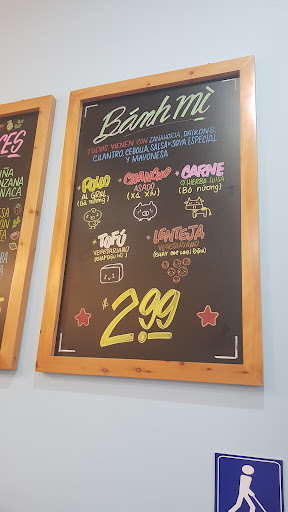 CES
ÑA
NZANA
NACA
Bánh mì
TODAS VIENEN CON ZANAHORIA, DAIKONS,
CILANTRO, CEBOLLA, SALSA DE SOYA ESPECIAL
Y MAYONESA
+ POLLO
AL GRILL
(Gà nướng)
+ CHANCHO
ASADO
(Xá Xíu)
+ CARNE
@ HIERBA LUISA
(Bò nướng)
+ TOFÚ
VEGETARIANO
+ LENTEJA
VEGETARIANO
2.99